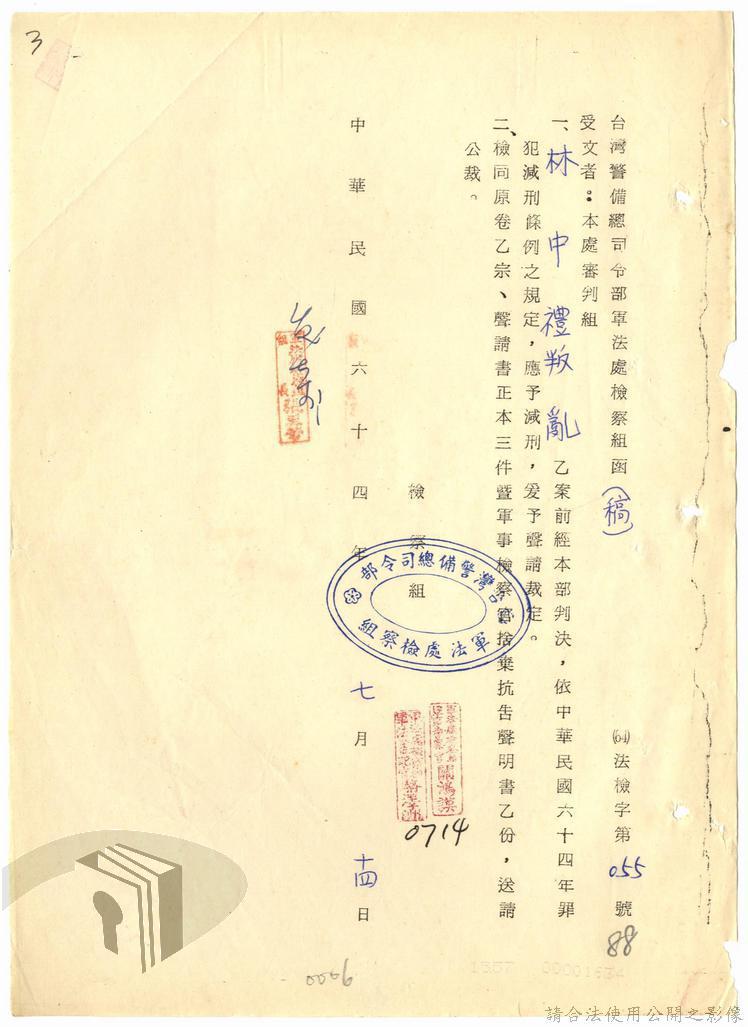 台灣警備總司令部軍法處檢察組函(稿) (64)法檢字第055號
88
受文者：本處審判組
一、林中禮叛亂乙案前經本部判決，依中華民國六十四年罪
犯減刑條例之規定，應予減刑，爰予聲請裁定。
二、檢同原卷乙宗、聲請書正本三件暨軍事檢察官捨棄抗告聲明書乙份，送請
公裁。
檢察組
台灣警備總司令部
軍法處檢察組
關鴻漠
0714
中華民國六十四年七月十四日
3
0006
1557 00001634
請合法使用公開之影像